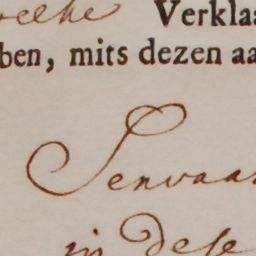 welke Verklaa
ben, mits dezen aa
Servaas
in dese